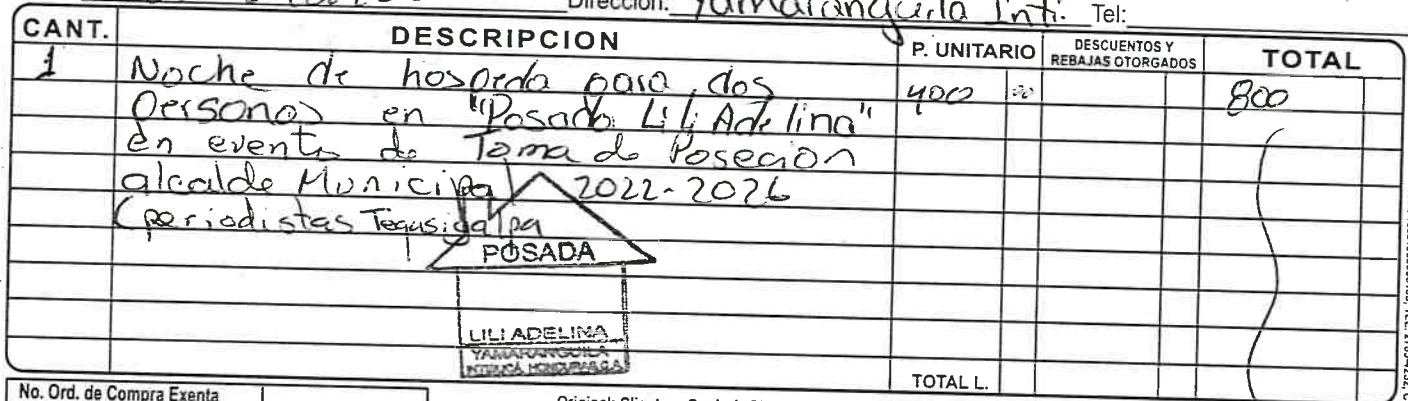 Dirección: Yamaranguila Inti. Tel:
CANT. DESCRIPCION P. UNITARIO DESCUENTOS Y REBAJAS OTORGADOS TOTAL
1 Noche de hospeda para dos 400 00 800
Personas en "Posada Lili Adelina"
en evento de Toma de Poseción
alcalde Municipal 2022-2026
(periodistas Tegusigalpa
POSADA
LILI ADELINA
YAMARANGUILA
INTIBUCÁ, HONDURAS, C.A.
TOTAL L.
No. Ord. de Compra Exenta